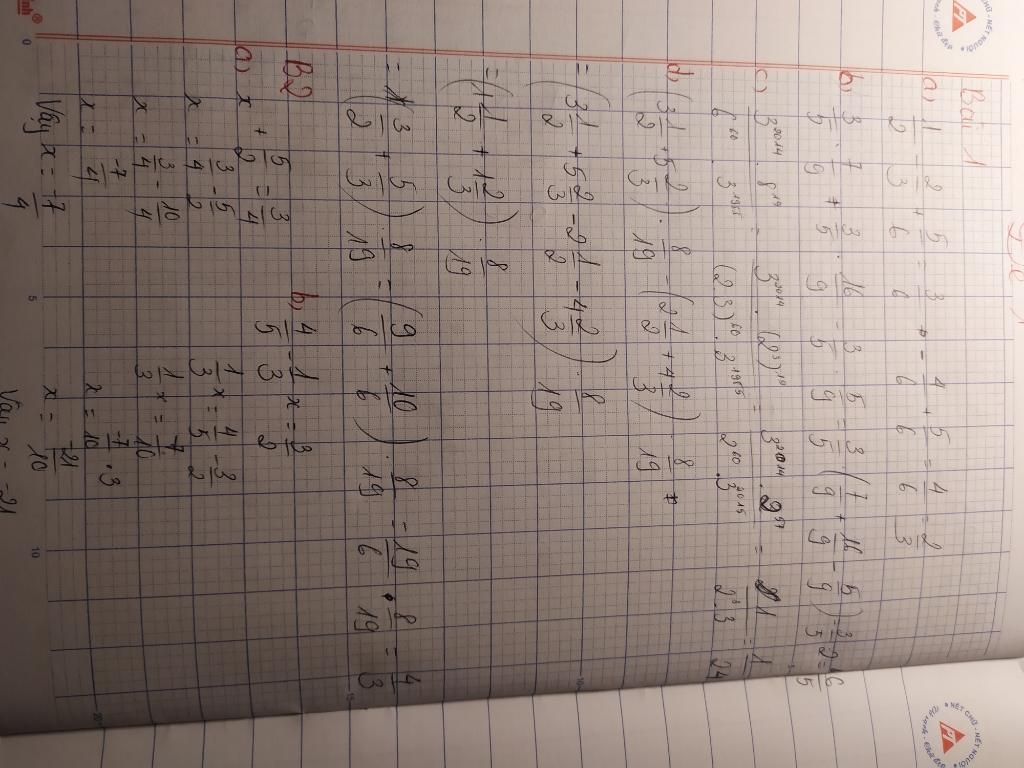 Đề 1
Bài 1
a) 1/2 - 2/3 + 5/6 = 3/6 - 4/6 + 5/6 = 4/6 = 2/3
b) 3/5 . 7/9 + 3/5 . 16/9 - 3/5 . 5/9 = 3/5 . (7/9 + 16/9 - 5/9) = 3/5 . 2 = 6/5
c) 3²⁰¹⁴ . 8¹⁹ / 6⁶⁰ . 3¹⁹⁵⁵ = 3²⁰¹⁴ . (2³)¹⁹ / (2.3)⁶⁰ . 3¹⁹⁵⁵ = 3²⁰¹⁴ . 2⁵⁷ / 2⁶⁰ . 3²⁰¹⁵ = 1 / 2³.3 = 1/24
d) (3 1/2 + 5 2/3) . 8/19 - (2 1/2 + 4 2/3) . 8/19
= (3 1/2 + 5 2/3 - 2 1/2 - 4 2/3) . 8/19
= (1 1/2 + 1 2/3) . 8/19
= (3/2 + 5/3) . 8/19 = (9/6 + 10/6) . 8/19 = 19/6 . 8/19 = 4/3
B2
a) x + 5/2 = 3/4
x = 3/4 - 5/2
x = 3/4 - 10/4
x = -7/4
Vậy x = -7/4
b) 4/5 - 1/3 x = 3/2
1/3 x = 4/5 - 3/2
1/3 x = -7/10
x = -7/10 . 3
x = -21/10
Vậy x = -21
0
5
10
NÉT CHỮ - NẾT NGƯỜI
NÉT CHỮ - NẾT NGƯỜI